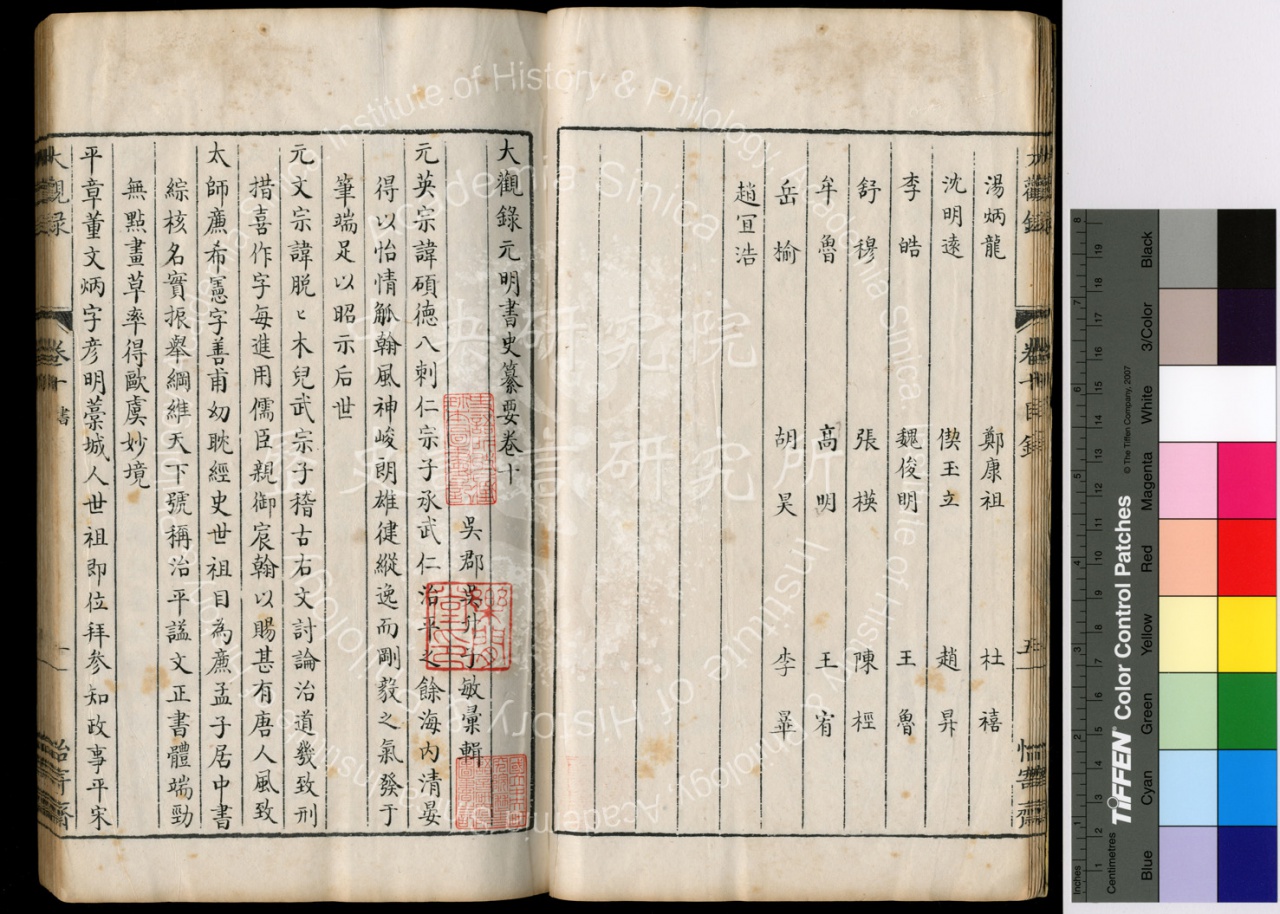 湯炳龍 鄭康祖 杜禧
沈明遠 偰玉立 趙昇
李皓 魏俊明 王魯
舒穆 張模 陳桱
牟魯 高明 王宥
岳榆 胡昊 李暈
趙宜浩
大觀錄元明書史纂要卷十
吳郡吳升子敏彙輯
元英宗諱碩德八剌仁宗子承武仁治平之餘海內清晏
得以怡情觚翰風神峻朗雄健縱逸而剛毅之氣發于
筆端足以昭示后世
元文宗諱脫〻木兒武宗子稽古右文討論治道幾致刑
措喜作字每進用儒臣親御宸翰以賜甚有唐人風致
太師廉希憲字善甫幼耽經史世祖目為廉孟子居中書
綜核名實振舉綱維天下號稱治平謚文正書體端勁
無點畫草率得歐虞妙境
平章董文炳字彥明藁城人世祖即位拜參知政事平宋
大觀錄 卷十 書
中央研究院
歷史語言研究所
Institute of History & Philology, Academia Sinica
Inches
Centimetres
TIFFEN Color Control Patches
© The Tiffen Company, 2007
Blue Cyan Green Yellow Red Magenta White 3/Color Black